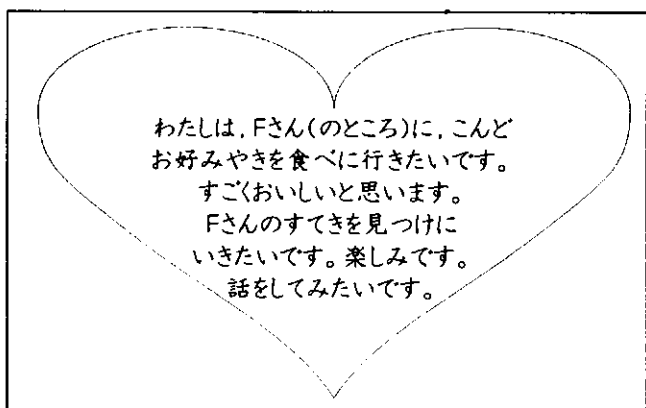 わたしは，Fさん(のところ)に，こんど
お好みやきを食べに行きたいです。
すごくおいしいと思います。
Fさんのすてきを見つけに
いきたいです。楽しみです。
話をしてみたいです。